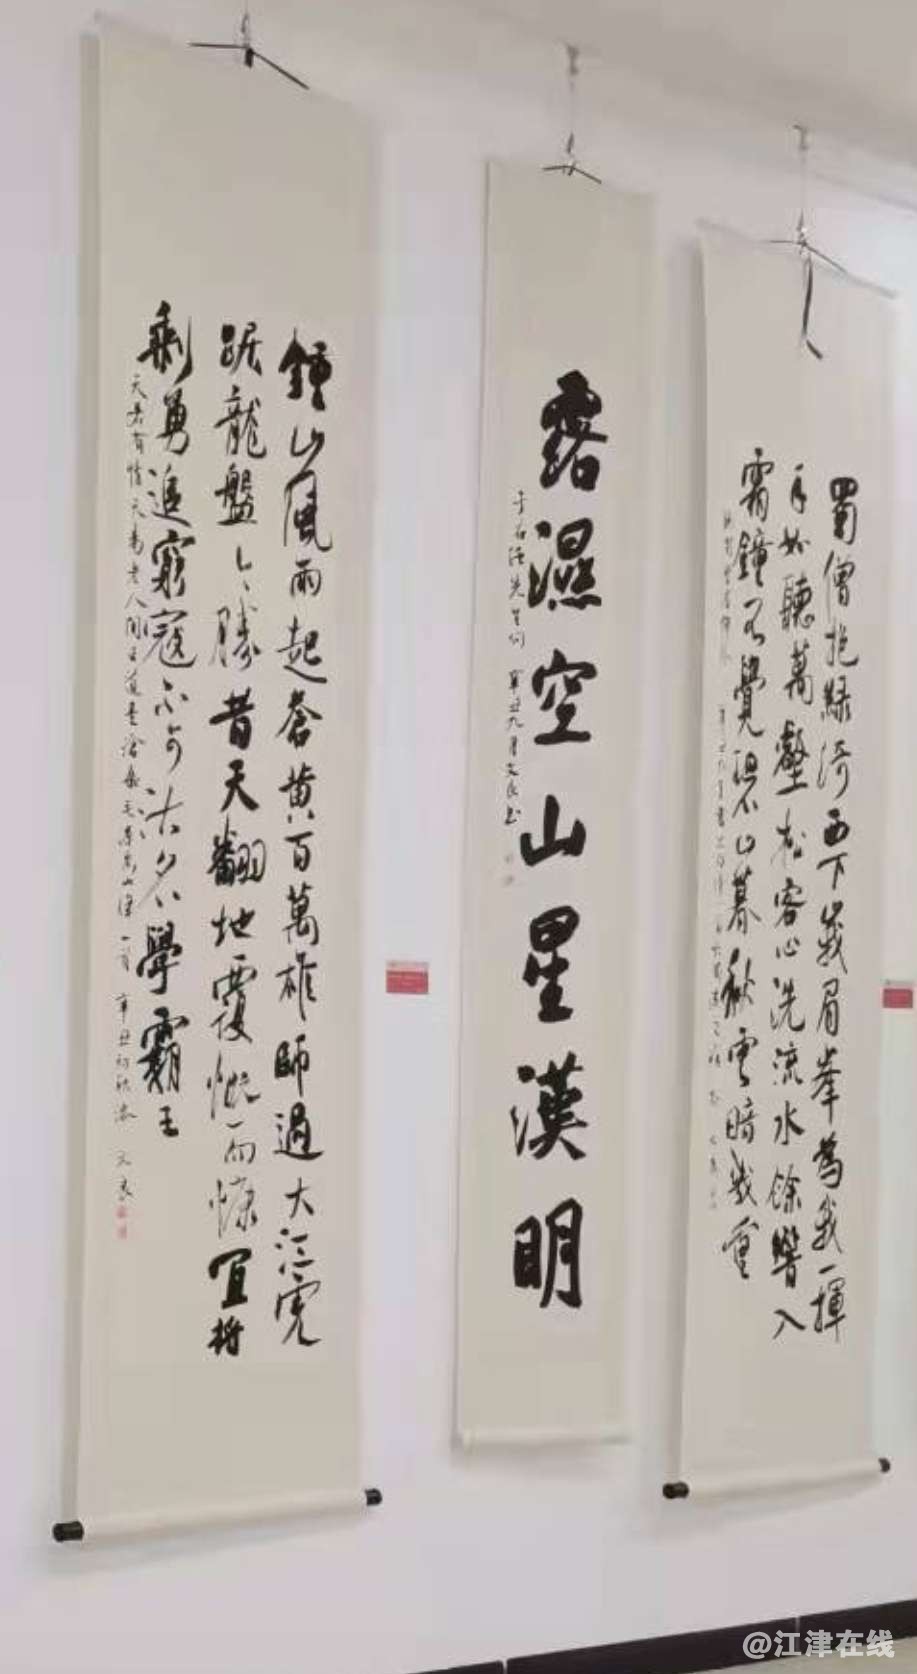 鍾山風雨起蒼黄百萬雄師過大江虎
踞龍盤今勝昔天翻地覆慨而慷宜將
剩勇追窮寇不可沽名學霸王
天若有情天亦老人間正道是滄桑
露濕空山星漢明
于右任先生句 辛丑九月文良书
蜀僧抱綠綺西下峨眉峰為我一揮
手如聽萬壑松客心洗流水餘響入
霜鐘不覺碧山暮秋雲暗幾重
@江津在线